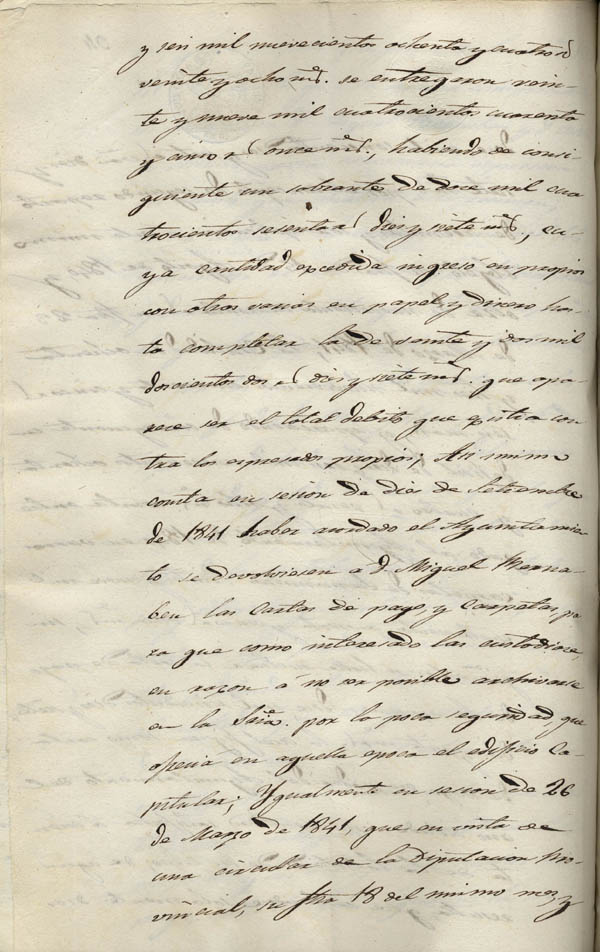 y seis mil nuevecientos ochenta y cuatro r.s
veinte y ocho m.s se entregaron vein-
te y nueve mil cuatrocientos cuarenta
y cinco r.s once m.s, habiendo de consi-
guiente un sobrante de doce mil cua
trocientos sesenta r.s diez y siete m.s, cu-
ya cantidad excedida ingresó en propios
con otros varios en papel y dinero has-
ta completar la de y dos mil
doscientos dos r.s diez y siete m.s que apa-
rece ser el total debito que existia con
tra los espresados propios; Asi mismo
consta en sesion de diez de Setiembre
de 1841 haber acordado el Ayuntamien-
to se devolviesen a D. Miguel Berna-
beu las Cartas de pago y Carpetas, pa
ra que como interesado las custodiase,
en razon á no ser posible archivarse
en la Sria. por la poca seguridad que
ofrecia en aquella epoca el edificio Ca-
pitular; Ygualmente en sesion de 26
de Marzo de 1841, que en vista de
una circular de la Diputacion Pro-
vincial, su fha 18 del mismo mes, y